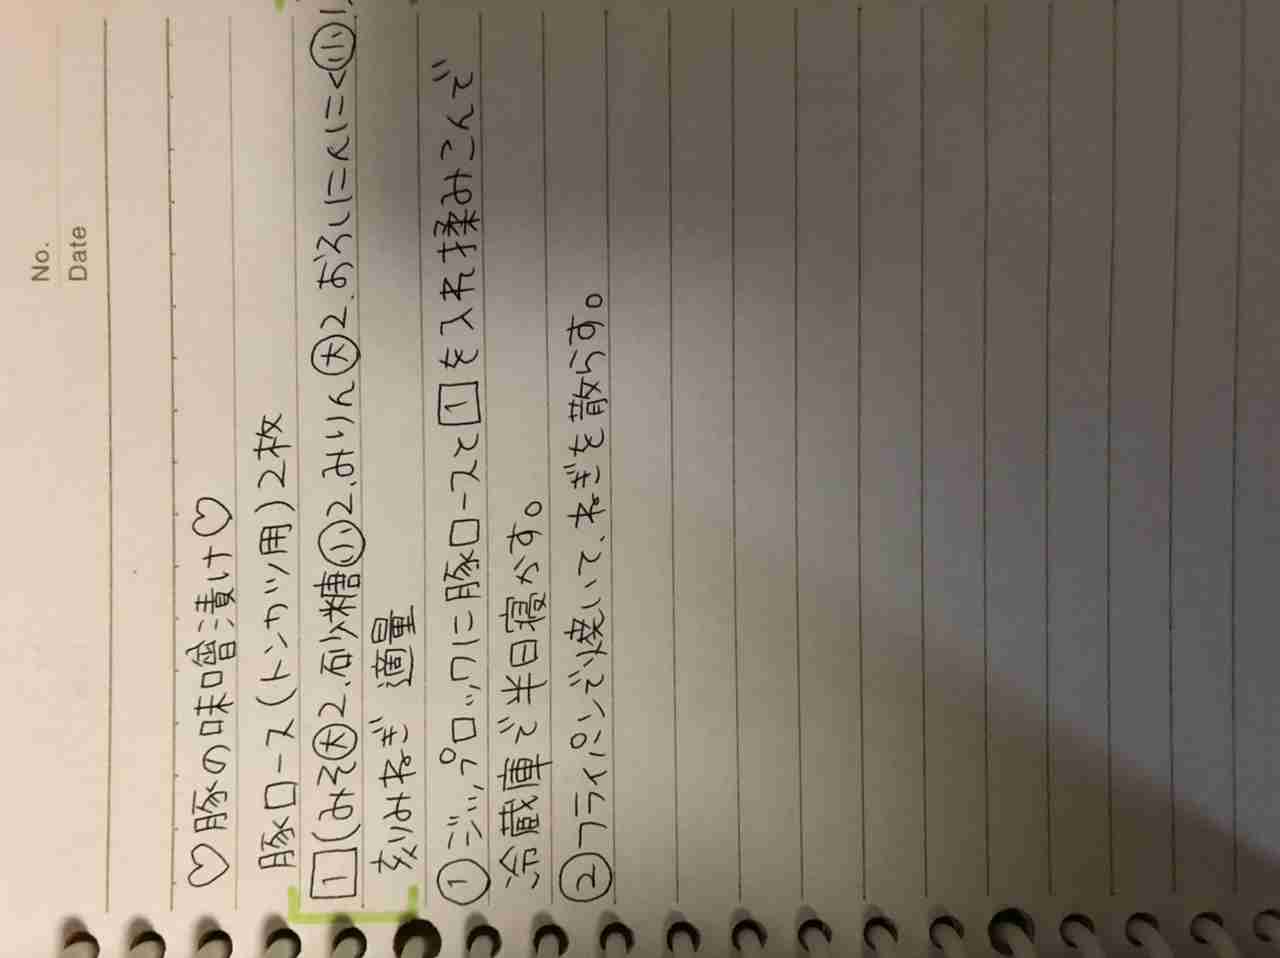 No.
Date
♡豚の味噌漬け♡
豚ロース(トンカツ用)2枚
1(みそ大2.砂糖小2.みりん大2.おろしにんにく小1
刻みねぎ 適量
①ジップロックに豚ロースと1を入れ揉みこんで
冷蔵庫で半日寝かす。
②フライパンで焼いて、ねぎを散らす。